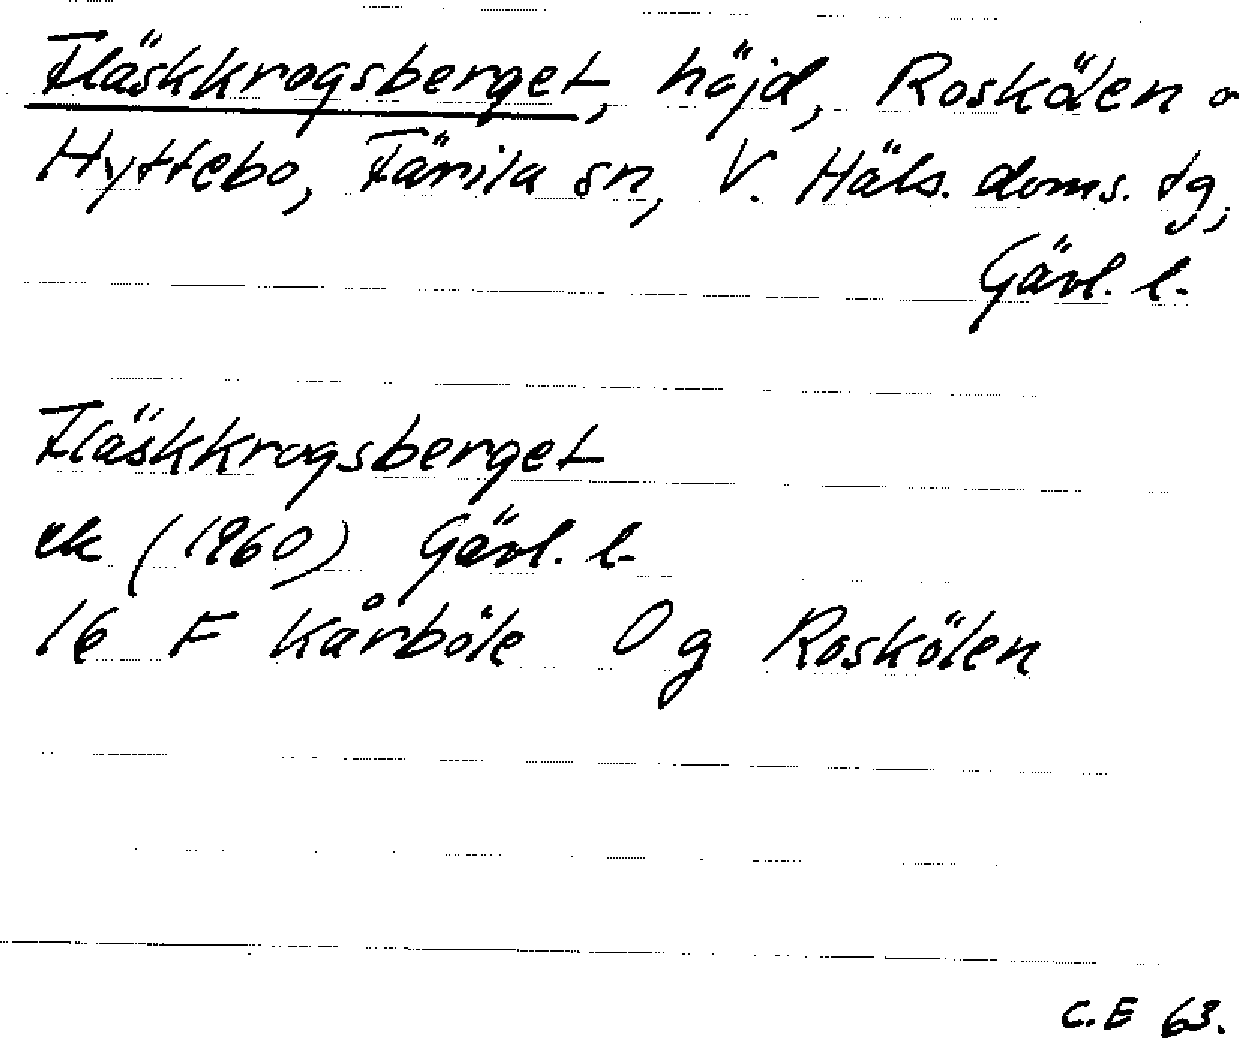 Fläskkrogsberget, höjd, Roskölen o
Hyttebo, Färila sn, V. Häls. doms. tg,
Gävl. l.
Fläskkrogsberget
ek (1960) Gävl. l.
16 F Kårböle O g Roskölen
C.E 63.